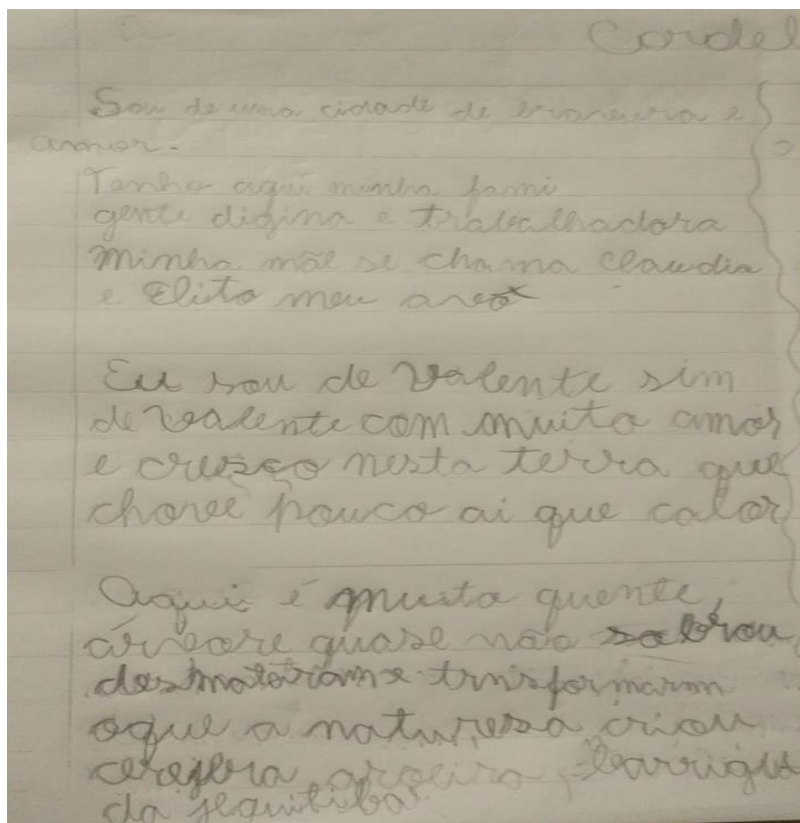 Cordel
Sou de uma cidade de e
amor.
Tanho aqui minha fami
gente digina e trabalhadora
minha mãe se chama claudia
e Elito meu avô
Eu sou de valente sim
de valente com muito amor
e cresço nesta terra que
chove pouco ai que calor
Aqui é muito quente,
árvore quase não sobrou
desmataram e trnsformarm
oque a naturesa criou
cerejera aroeira, barrigu
da jequitibá